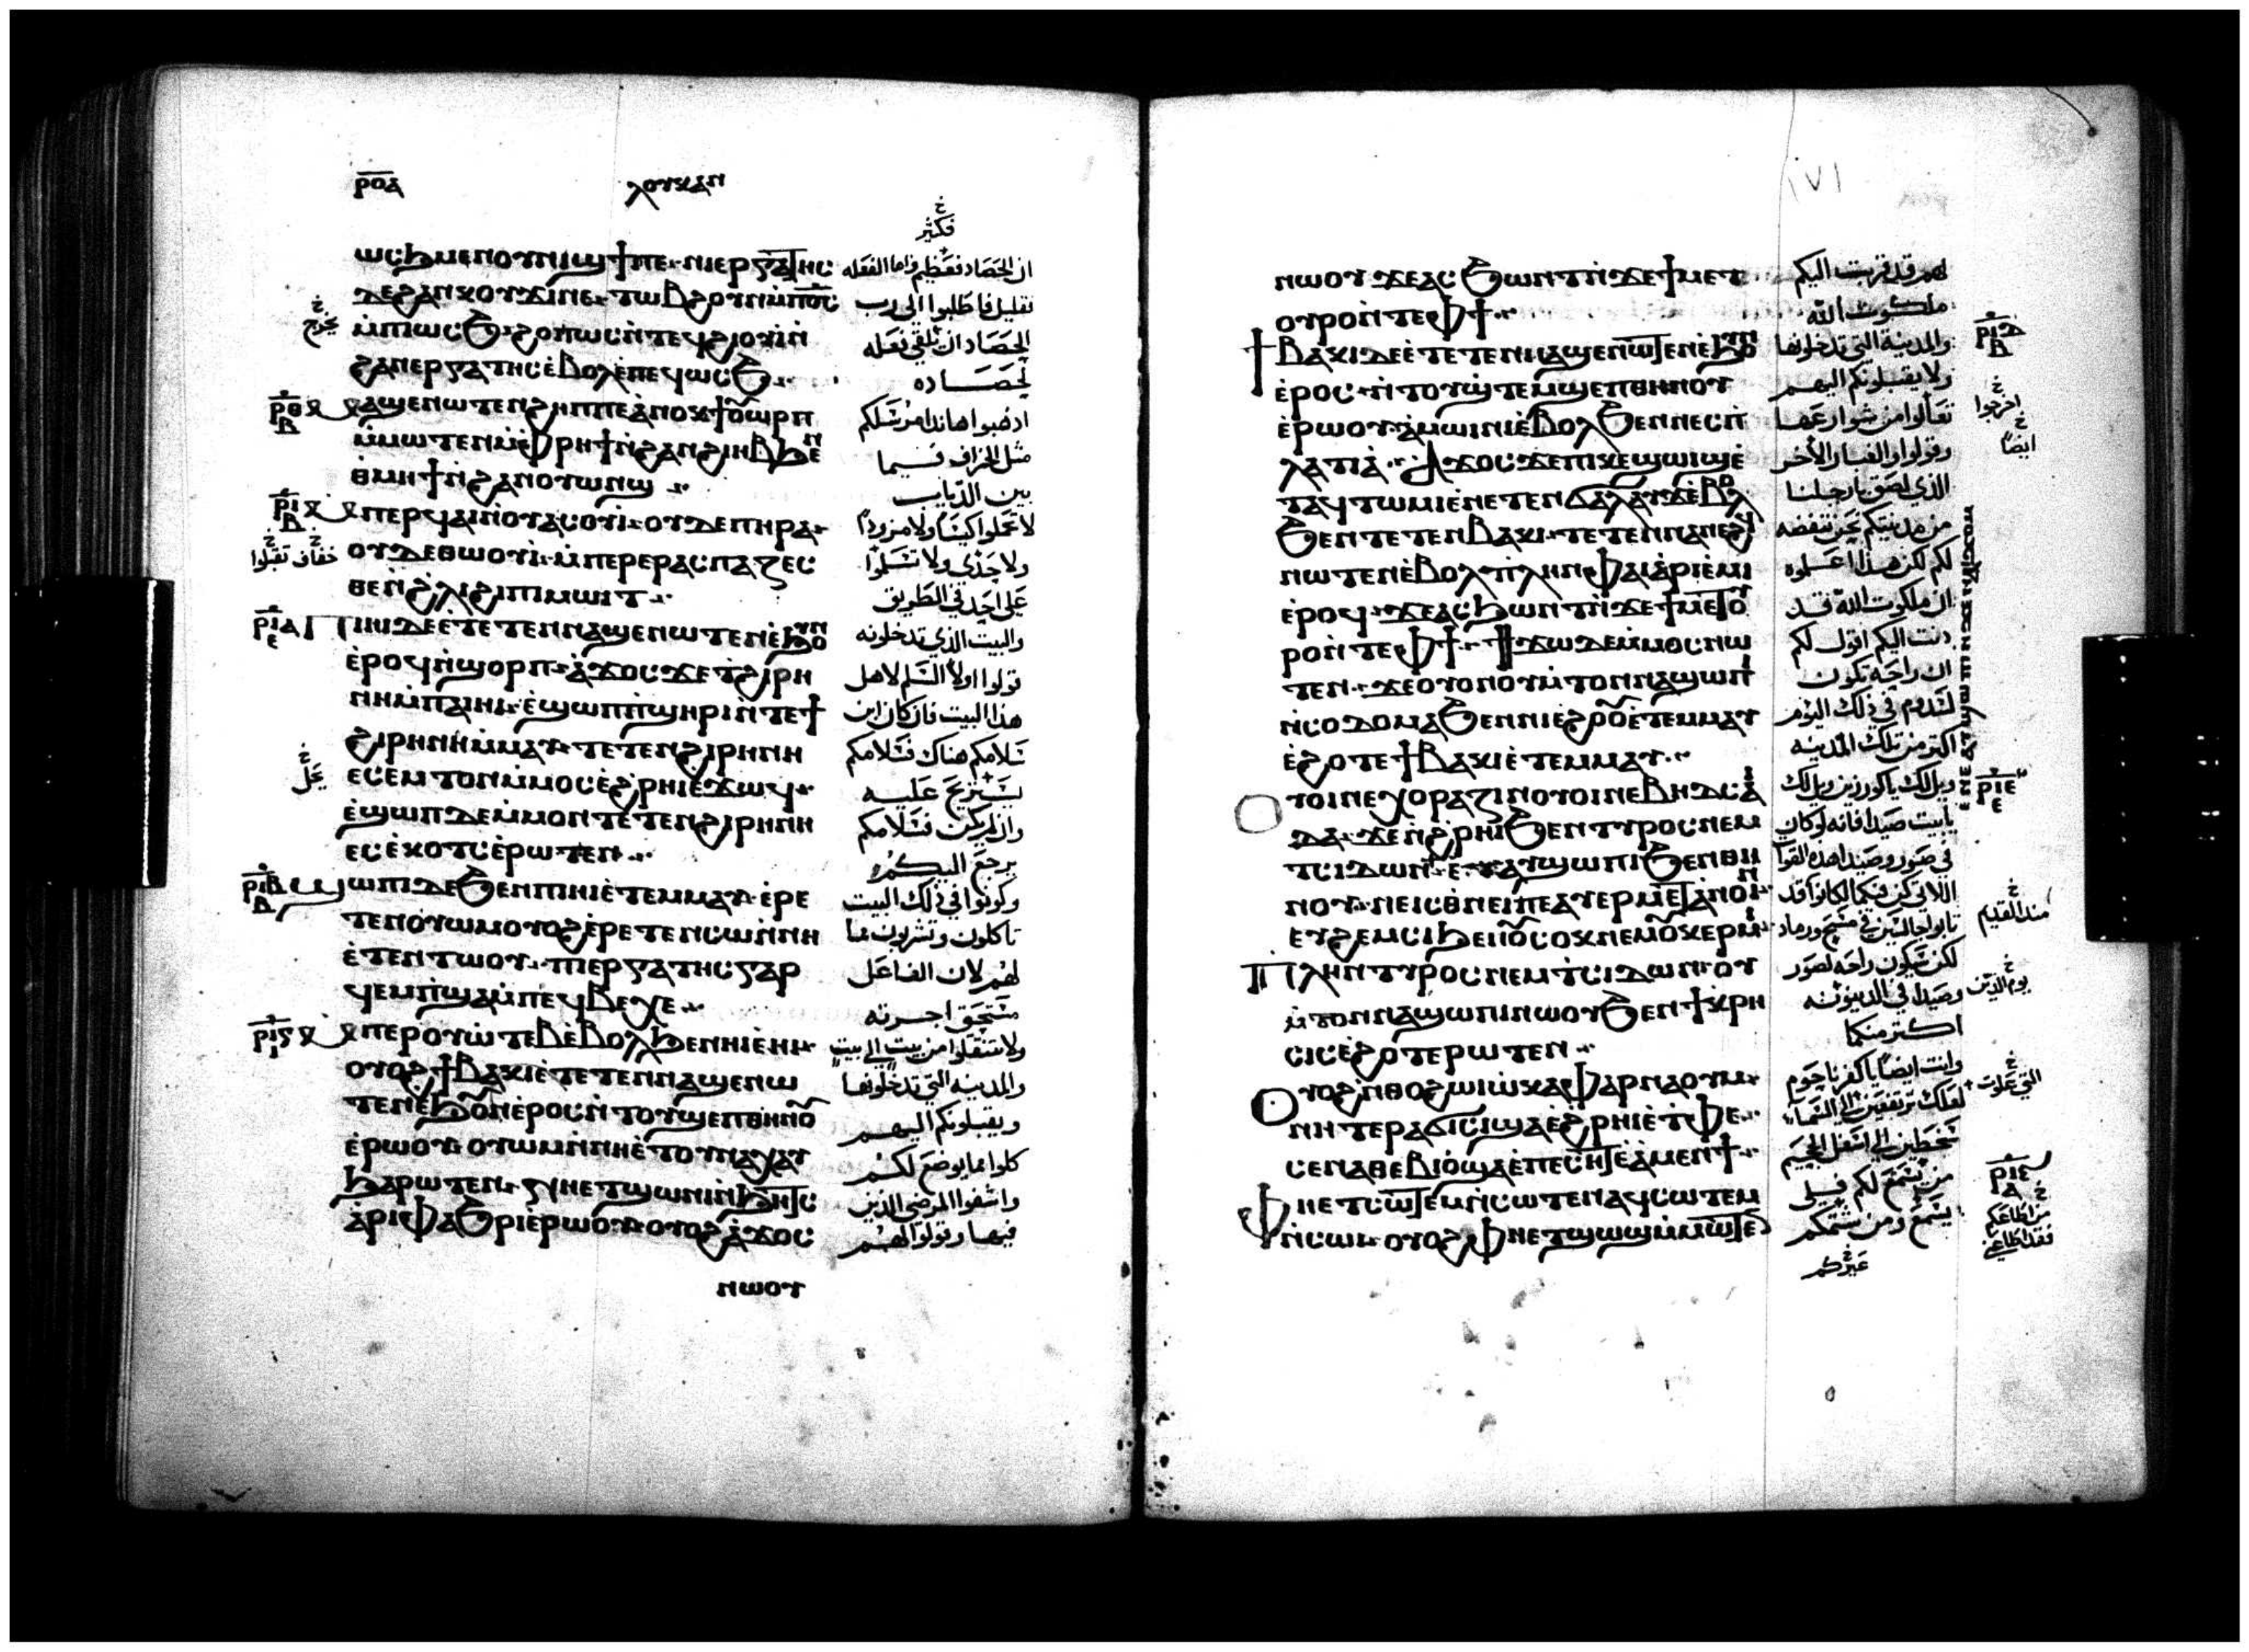 ⲣⲟⲁ
ⲗⲟⲩⲕⲁⲛ
فكثير
ⲱⲥϧⲙⲉⲛⲟⲩⲛⲓϣϯⲡⲉ ⲛⲓⲉⲣⲅⲁⲧⲏⲥ
ⲇⲉϩⲁⲛⲕⲟⲩϫⲓⲛⲉ ⲧⲱⲃϩⲟⲩⲛⲙ̀ⲡϭⲥ
ⲙ̀ⲡⲱⲥϧ ϩⲟⲡⲱⲥⲛ̀ⲧⲉϥϩⲓⲟⲩⲓⲛ̀
ϩⲁⲛⲉⲣⲅⲁⲧⲏⲥⲉ̀ⲃⲟⲗⲉ̀ⲡⲉϥⲱⲥϧ
ⲙⲁϣⲉⲛⲱⲧⲉⲛϩⲏⲡⲡⲉⲁ̀ⲛⲟⲕϯⲟⲩⲱⲣⲡ
ⲙ̀ⲙⲱⲧⲉⲛⲙ̀ⲫⲣⲏϯⲛ̀ϩⲁⲛϩⲓⲏⲃϧⲉⲛ
ⲑ̀ⲙⲏϯⲛ̀ϩⲁⲛⲟⲩⲱⲛϣ
ⲙ̀ⲡⲉⲣϥⲁⲓⲛ̀ⲟⲩⲁⲥⲟⲩⲓ ⲟⲩⲇⲉⲡⲏⲣⲁ
ⲟⲩⲇⲉⲑⲱⲟⲩⲓ̀ ⲙ̀ⲡⲉⲣⲉⲣⲁⲥⲡⲁⲍⲉⲥ
ⲑⲉⲛ̀ϩ̀ⲗⲓϩⲓⲡⲓⲙⲱⲓⲧ
ⲡⲓⲏⲓⲇⲉⲉ̀ⲧⲉⲧⲉⲛⲛⲁϣⲉⲛⲱⲧⲉⲛⲉ̀ϧⲟⲩⲛ
ⲉ̀ⲣⲟϥⲛ̀ϣⲟⲣⲡ ⲁ̀ϫⲟⲥϫⲉⲧ̀ϩⲓⲣⲏ
ⲛⲏⲙ̀ⲡⲁⲓⲏⲓ ⲉ̀ϣⲱⲡⲡ̀ϣⲏⲣⲓⲛ̀ⲧⲉϯ
ϩⲓⲣⲏⲛⲏⲙ̀ⲙⲁⲩ ⲧⲉⲧⲉⲛϩⲓⲣⲏⲛⲏ
ⲉⲥⲉ̀ⲙⲧⲟⲛⲙ̀ⲙⲟⲥⲉ̀ϩ̀ⲣⲏⲓⲉ̀ϫⲱϥ
ⲉ̀ϣⲱⲡⲇⲉⲙ̀ⲙⲟⲛⲧⲉⲧⲉⲛϩⲓⲣⲏⲛⲏ
ⲉⲥⲉ̀ⲕⲟⲧⲥⲉ̀ⲣⲱⲧⲉⲛ
ϣⲱⲡⲓⲇⲉϧⲉⲛⲡⲓⲏⲓⲉ̀ⲧⲉⲙⲙⲁⲩ ⲉ̀ⲣⲉ
ⲧⲉⲛⲟⲩⲱⲙⲟⲩⲟϩⲉ̀ⲣⲉⲧⲉⲛⲥⲱⲛ̀ⲛⲏ
ⲉ̀ⲧⲉⲛⲧⲱⲟⲩ ⲡⲓⲉⲣⲅⲁⲧⲏⲥⲅⲁⲣ
ϥⲉⲙⲡ̀ϣⲁⲙ̀ⲡⲉϥⲃⲉⲭⲉ
ⲙ̀ⲡⲉⲣⲟⲩⲱ̀ⲧⲉⲃⲉ̀ⲃⲟⲗϧⲉⲛⲏⲓⲉ̀ⲏⲓ
ⲟⲩⲟϩϯⲃⲁⲕⲓⲉ̀ⲧⲉⲧⲉⲛⲛⲁϣⲉⲛⲱ
ⲧⲉⲛⲉ̀ϧⲟⲩⲛⲉ̀ⲣⲟⲥⲛ̀ⲧⲟⲩϣⲉⲡⲑⲏⲛⲟⲩ
ⲉ̀ⲣⲱⲟⲩ ⲟⲩⲱⲙⲛ̀ⲛⲏⲉ̀ⲧⲟⲩⲛⲁⲭⲁⲩ
ϧⲁⲣⲱⲧⲉⲛ
ⲁ̀ⲣⲓⲫⲁϧⲣⲓⲉ̀ⲣⲱⲟⲩ ⲟⲩⲟϩⲁ̀ϫⲟⲥ
ⲛⲱⲟⲩ
ان الحصاد فعظيم واما الفعله
فقليل فاطلبوا الى رب
الحصاد ان يلقي فعله
لحصاده
اذهبوا هانذا مرسلكم
مثل الخراف فيما
بين الدياب
لا تحملوا كيسا ولا مزودا
ولا حذى ولا تسلموا
على احد في الطريق
والبيت الذي تدخلونه
قولوا اولا السلم لاهل
هذا البيت فان كان ابن
سلامكم هناك فسلامكم
يستريح عليه
وان لم يكن فسلامكم
يرجع اليكم
وكونوا في ذلك البيت
تاكلون وتشربون مما
لهم لان الفاعل
مستحق اجرته
ولا تنتقلوا من بيت الى بيت
والمدينه التي تدخلونها
ويقبلونكم اليهم
كلوا مما يوضع لكم
واشفوا المرضى الذين
فيها وقولوا لهم
يخرج
ⲣⲑ
ⲣⲓ
خفاف تقبلوا
ⲣⲓⲁ
يحل
ⲣⲓⲃ
١٧١
ⲛⲱⲟⲩϫⲉⲁⲥϧⲱⲛⲧⲛ̀ϫⲉϯⲙⲉⲧ
ⲟⲩⲣⲟⲛ̀ⲧⲉⲫϯ
ϯⲃⲁⲕⲓⲇⲉⲉ̀ⲧⲉⲧⲉⲛⲛⲁϣⲉⲛⲱⲧⲉⲛⲉ̀ϧⲟⲩⲛ
ⲉ̀ⲣⲟⲥ ⲛ̀ⲧⲟⲩϣ̀ⲧⲉⲙϣⲉⲡⲑⲏⲛⲟⲩ
ⲉ̀ⲣⲱⲟⲩ ⲁ̀ⲙⲱⲓⲛⲓⲉ̀ⲃⲟⲗϧⲉⲛⲛⲉⲥⲡ̀
ⲗⲁⲧⲓⲁ̀ ⲁϫⲟⲥϫⲉⲡⲓⲕⲉϣⲱⲓϣⲉ̀
ⲧⲁϥⲧⲱⲙⲓⲉ̀ⲛⲉⲧⲉⲛϭⲁⲗⲁⲩϫⲉ̀ⲃⲟⲗ
ϧⲉⲛⲧⲉⲧⲉⲛⲃⲁⲕⲓ ⲧⲉⲧⲉⲛⲛⲁⲛⲉϩϥ
ⲛⲱⲧⲉⲛⲉ̀ⲃⲟⲗ ⲡ̀ⲗⲏⲛⲫⲁⲓⲁ̀ⲣⲓⲉ̀ⲙⲓ
ⲉ̀ⲣⲟϥ ϫⲉⲁⲥϧⲱⲛⲧⲛ̀ϫⲉϯⲙⲉⲧⲟⲩ
ⲣⲟⲛ̀ⲧⲉⲫϯ ϯϫⲱⲇⲉⲙ̀ⲙⲟⲥⲛⲱ
ⲧⲉⲛ ϫⲉⲟⲩⲟⲛⲟⲩⲙ̀ⲧⲟⲛⲛⲁϣⲱⲡⲓ
ⲛ̀ⲥⲟⲇⲟⲙⲁϧⲉⲛⲡⲓⲉ̀ϩⲟⲟⲩⲉ̀ⲧⲉⲙⲙⲁⲩ
ⲉ̀ϩⲟⲧⲉϯⲃⲁⲕⲓⲉ̀ⲧⲉⲙⲙⲁⲩ
ⲟⲩⲟⲓⲛⲉⲭⲟⲣⲁⲍⲓⲛⲟⲩⲟⲓⲛⲉⲃⲏⲇⲥⲁⲓ
ⲇⲁ ϫⲉⲛ̀ϩ̀ⲣⲏⲓϧⲉⲛⲧⲩⲣⲟⲥⲛⲉⲙ
ⲧⲥⲓⲇⲱⲛ ⲉ̀ⲧⲁⲩϣⲱⲡⲓϧⲉⲛⲑⲏ
ⲛⲟⲩ
ⲡⲗⲏⲛⲧⲩⲣⲟⲥⲛⲉⲙⲧ̀ⲥⲓⲇⲱⲛ ⲟⲩ
ⲙ̀ⲧⲟⲛⲛⲁϣⲱⲡⲓⲛⲱⲟⲩϧⲉⲛϯⲕⲣⲏ
ⲥⲓⲥⲉ̀ϩⲟⲧⲉⲣⲱⲧⲉⲛ
ⲟⲩⲟϩⲛ̀ⲑⲟϩⲱⲓⲱ̀ⲕⲁⲫⲁⲣⲛⲁⲟⲩⲙ
ⲙⲏⲧⲉⲣⲁϭⲓⲥⲓϣⲁⲉ̀ϩ̀ⲣⲏⲓⲉ̀ⲧ̀ⲫⲉ
ⲥⲉⲛⲁⲑⲉⲃⲓⲟ̀ϣⲁⲉ̀ⲡⲉⲥⲏⲧⲉ̀ⲁ̀ⲙⲉⲛϯ
ⲫⲏⲉⲧⲥⲱⲧⲉⲙⲛ̀ⲥⲱⲧⲉⲛⲁϥⲥⲱⲧⲉⲙ
ⲛ̀ⲥⲱⲓ ⲟⲩⲟϩⲫⲏⲉⲧϣⲱϣⲙ̀ⲙⲱⲧⲉⲛ
لهم قد قربت اليكم
ملكوت الله
والمدينة التي تدخلونها
ولا يقبلونكم اليهم
تعالوا من شوارعها
وقولوا والغبار الاخر
الذي لصق بارجلنا
من مدينتكم نحن ننفضه
لكم لكن هذا اعلموه
ان ملكوت الله قد
دنت اليكم اقول لكم
ان راحة تكون
لسدوم في ذلك اليوم
اكتر من تلك المدينه
ويل لك يا كورزين ويل لك
يا بيت صيدا فانه لو كان
في صور وصيدا هذه القوا
اللاتي كن فيكما لكانوا قد
تابوا جالسين في مسح ورماد
لكن ستكون راحه لصور
وصيدا في الدينونه
اكتر منكما
وانت ايضا يا كفرناحوم
لعلك ترتفعين الى السما
ستحطين الى اسفل الجحيم
من يسمع لكم فلي
يسمع ومن شتمكم
غيركم
اخرجوا
ايضا
ⲣⲓⲉ
منذ القديم
يوم الدين
التي علوت
من اطاعكم
فقد اطاعني